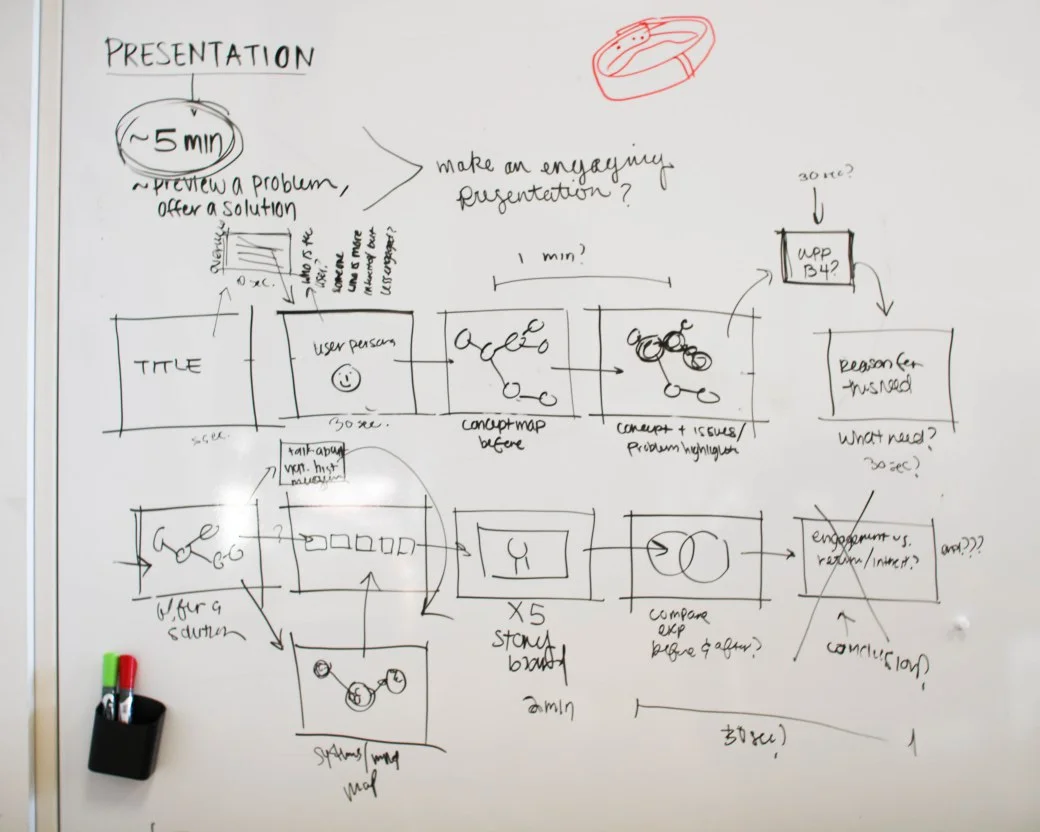 PRESENTATION
~5 min
~preview a problem,
offer a solution
make an engaging
presentation?
30 sec?
app
B4?
overview
→ who is the
user?
someone
who is more
less engaged?
1 min?
TITLE
5 sec.
user persona
30 sec.
concept map
before
concept + issues/
problem highlight
Reason for
this need
What need?
30 sec?
talk about
?
offer a
solution
systems/mind
map
X5
story
board
2 min
compare
exp
before & after?
engagement vs.
return/interest?
and???
conclusion?
30 sec?